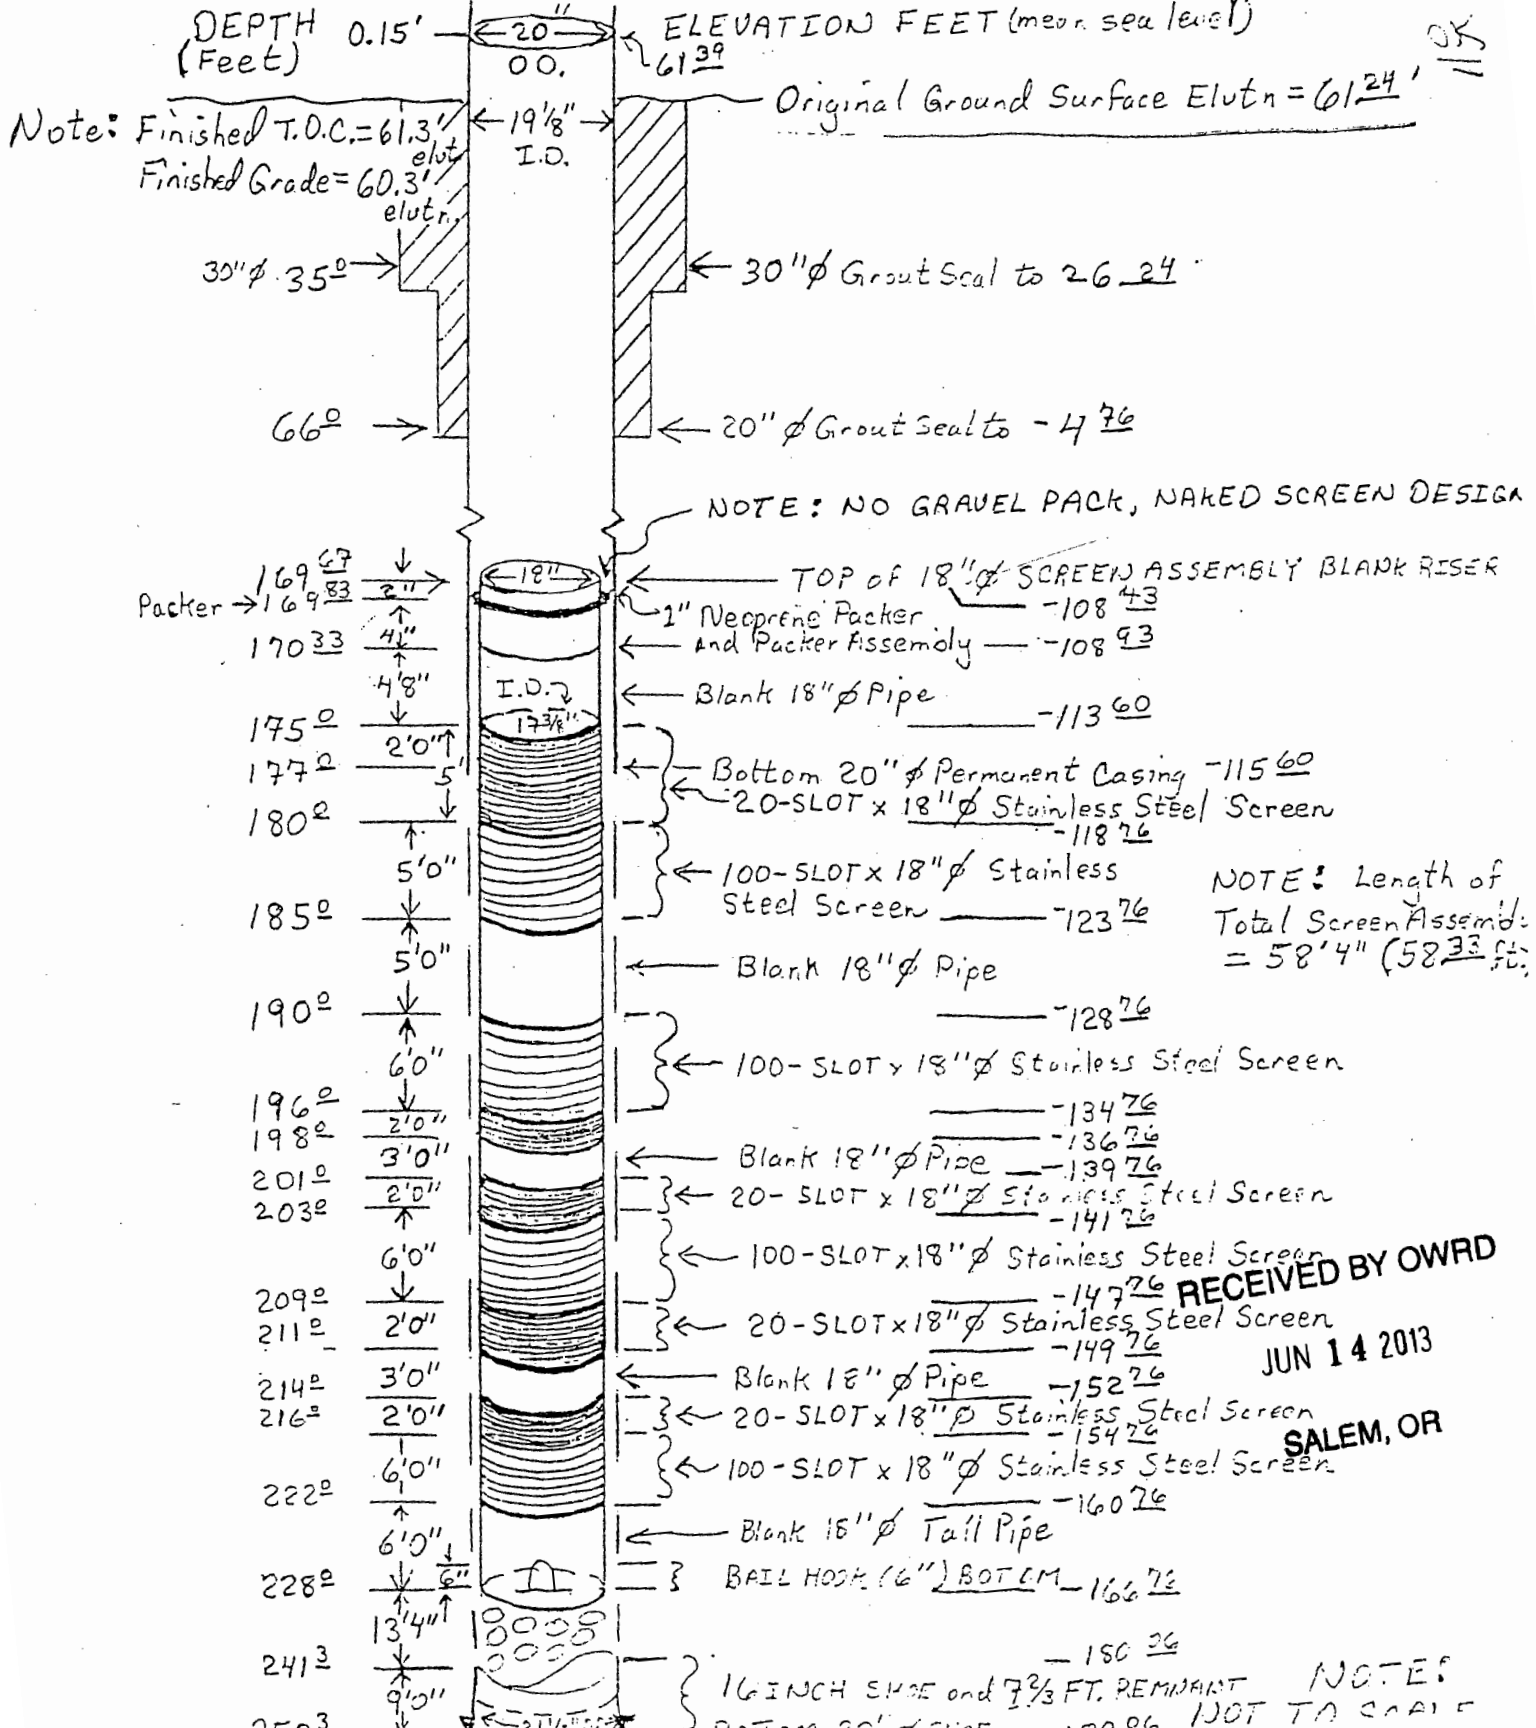 DEPTH 0.15' 20" ELEVATION FEET (mean sea level)
(Feet) O.D. 61 39 OK
Original Ground Surface Elvtn = 61.24'
Note: Finished T.O.C.= 61.3' 19 1/8"
elvt. I.D.
Finished Grade = 60.3'
elvtn.
30"ø 35 0 30"ø Grout Seal to 26.24
66 0 20"ø Grout Seal to -4 76
NOTE: NO GRAVEL PACK, NAKED SCREEN DESIGN
169 67 18" TOP OF 18"ø SCREEN ASSEMBLY BLANK RISER
Packer → 169 83 2" 1" Neoprene Packer -108 43
170 33 4" And Packer Assembly -108 93
4'8" I.D. Blank 18"ø Pipe
175 0 17 3/8" -113 60
2'0"
177 0 5' Bottom 20"ø Permanent Casing -115 60
20-SLOT x 18"ø Stainless Steel Screen
180 0 -118 76
5'0" 100-SLOT x 18"ø Stainless
Steel Screen
185 0 -123 76
NOTE: Length of
Total Screen
= 58'4" (58.33 ft.
5'0" Blank 18"ø Pipe
190 0 -128 76
6'0" 100-SLOT x 18"ø Stainless Steel Screen
196 0 -134 76
2'0"
198 0 -136 76
3'0" Blank 18"ø Pipe -139 76
201 0
2'0" 20-SLOT x 18"ø Stainless Steel Screen
203 0 -141 76
6'0" 100-SLOT x 18"ø Stainless Steel Screen
209 0 -147 76
RECEIVED BY OWRD
211 0 2'0" 20-SLOT x 18"ø Stainless Steel Screen
-149 76
JUN 14 2013
214 0 3'0" Blank 18"ø Pipe -152 76
216 0 2'0" 20-SLOT x 18"ø Stainless Steel Screen
-154 76
SALEM, OR
6'0" 100-SLOT x 18"ø Stainless Steel Screen
222 0 -160 76
6'0" Blank 18"ø Tail Pipe
6"
228 0 BAIL HOOK (6") BOTTOM -166 76
13'4"
241 3 -180
9'0" 16 INCH SHOE and 7 2/3 FT. REMNANT
NOTE:
NOT TO SCALE